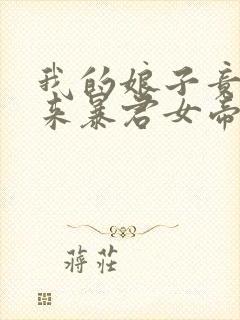 我的娘子竟
来暴君女帝
蒋莊